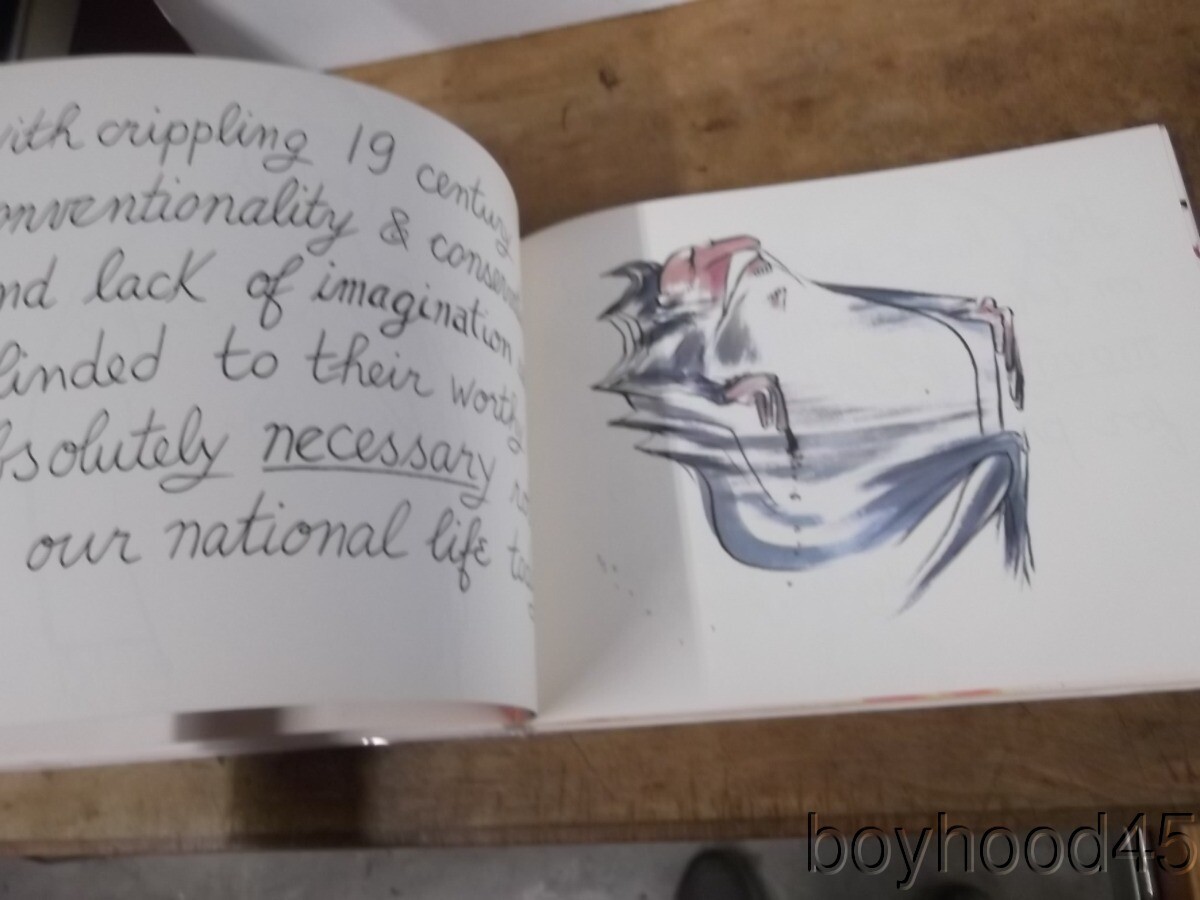 with crippling 19 century
onventionality & conserv
nd lack of imagination
linded to their worthy
bsolutely necessary
our national life
boyhood45